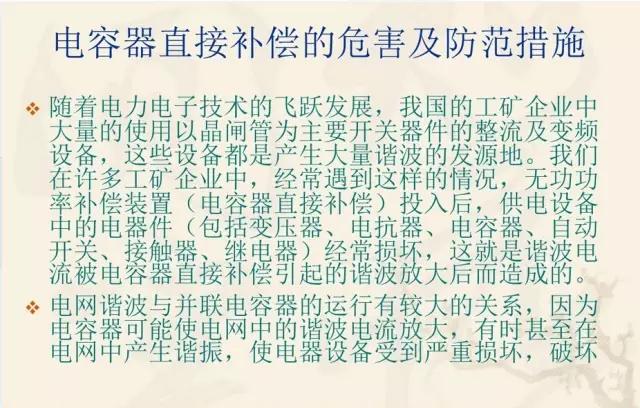 电容器直接补偿的危害及防范措施
随着电力电子技术的飞跃发展，我国的工矿企业中
大量的使用以晶闸管为主要开关器件的整流及变频
设备，这些设备都是产生大量谐波的发源地。我们
在许多工矿企业中，经常遇到这样的情况，无功功
率补偿装置（电容器直接补偿）投入后，供电设备
中的电器件（包括变压器、电抗器、电容器、自动
开关、接触器、继电器）经常损坏，这就是谐波电
流被电容器直接补偿引起的谐波放大后而造成的。
电网谐波与并联电容器的运行有较大的关系，因为
电容器可能使电网中的谐波电流放大，有时甚至在
电网中产生谐振，使电器设备受到严重损坏，破坏